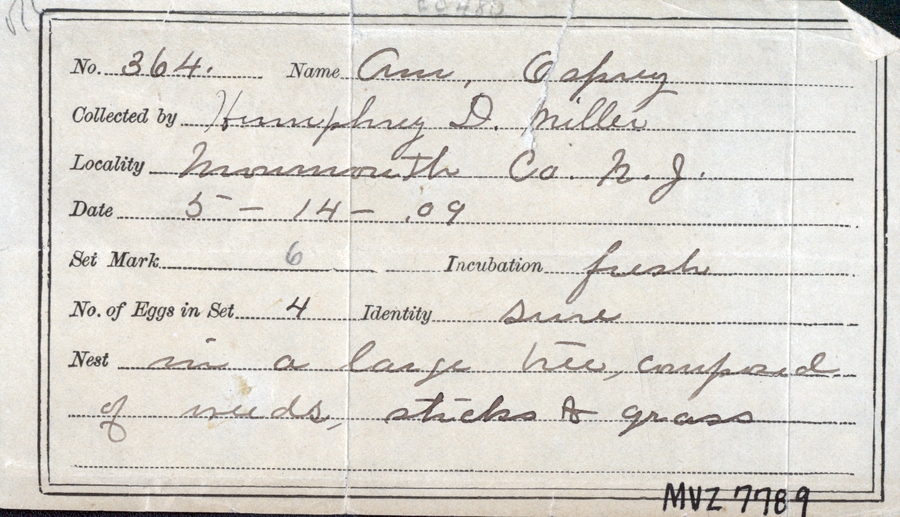 No. 364. Name Am. Osprey
Collected by Humphrey D. Miller
Locality Monmouth Co. N. J.
Date 5 - 14 - .09
Set Mark 6 Incubation fresh
No. of Eggs in Set 4 Identity sure
Nest in a large tree, composed
of weeds, sticks & grass
MVZ 7789